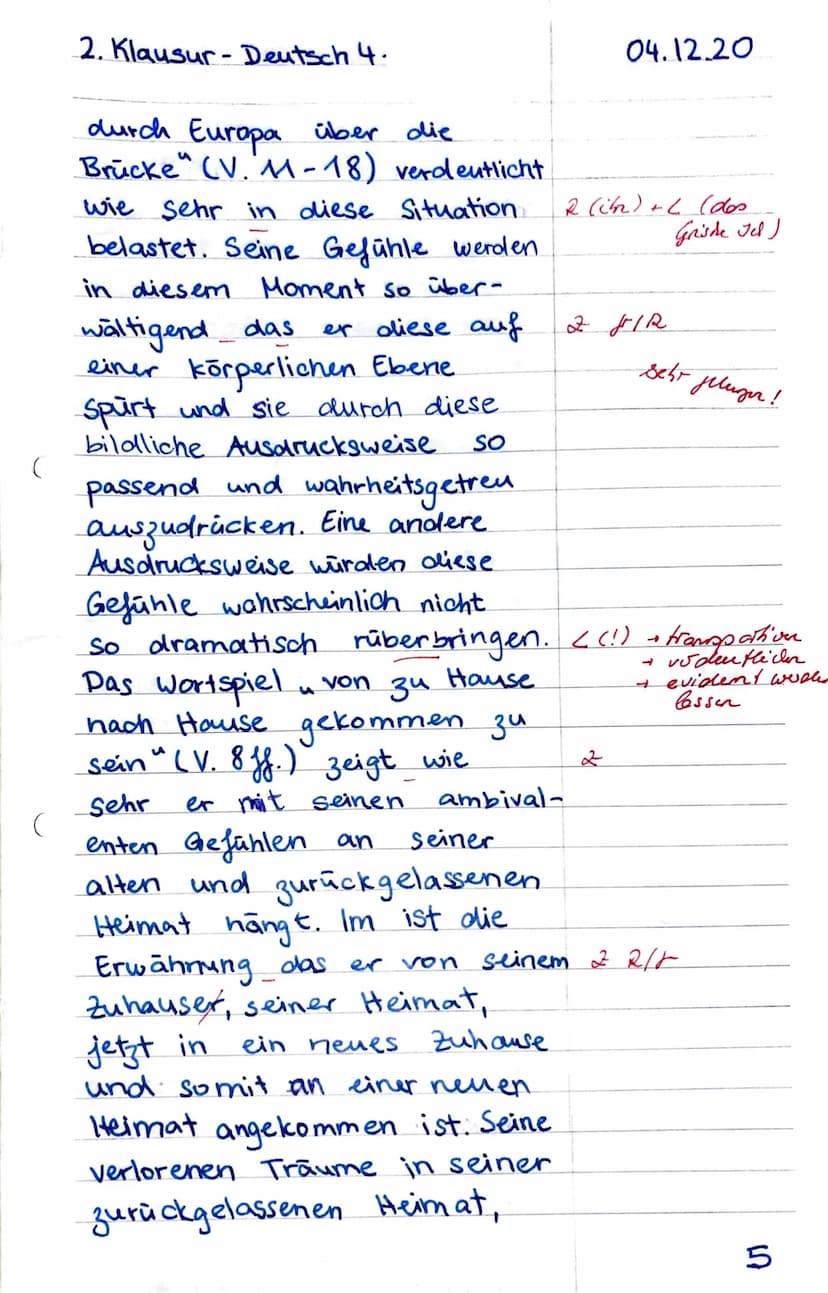 2. Klausur - Deutsch 4.
04.12.20
durch Europa über die
Brücke" (V. 11-18) verdeutlicht
wie sehr in diese Situation
R (ihn) + L (das
belastet. Seine Gefühle werden
in diesem Moment so über-
wältigend das er diese auf
Z
einer körperlichen Ebene
sehr
spürt und sie durch diese
bildliche Ausdrucksweise so
passend und wahrheitsgetreu
auszudrücken. Eine andere
Ausdrucksweise würden diese
Gefühle wahrscheinlich nicht
so dramatisch rüberbringen.
L (!) → transportieren
→ verdeutlichen
Das Wortspiel „von zu Hause
→ evident werden
lassen
nach Hause gekommen zu
sein" (V. 8 ff.) zeigt wie
Z
sehr er mit seinen ambival-
enten Gefühlen an seiner
alten und zurückgelassenen
Heimat hängt. Im ist die
Erwähnung das er von seinem
Z
Zuhauser, seiner Heimat,
jetzt in ein neues Zuhause
und somit an einer neuen
Heimat angekommen ist. Seine
verlorenen Träume in seiner
zurückgelassenen Heimat,
5